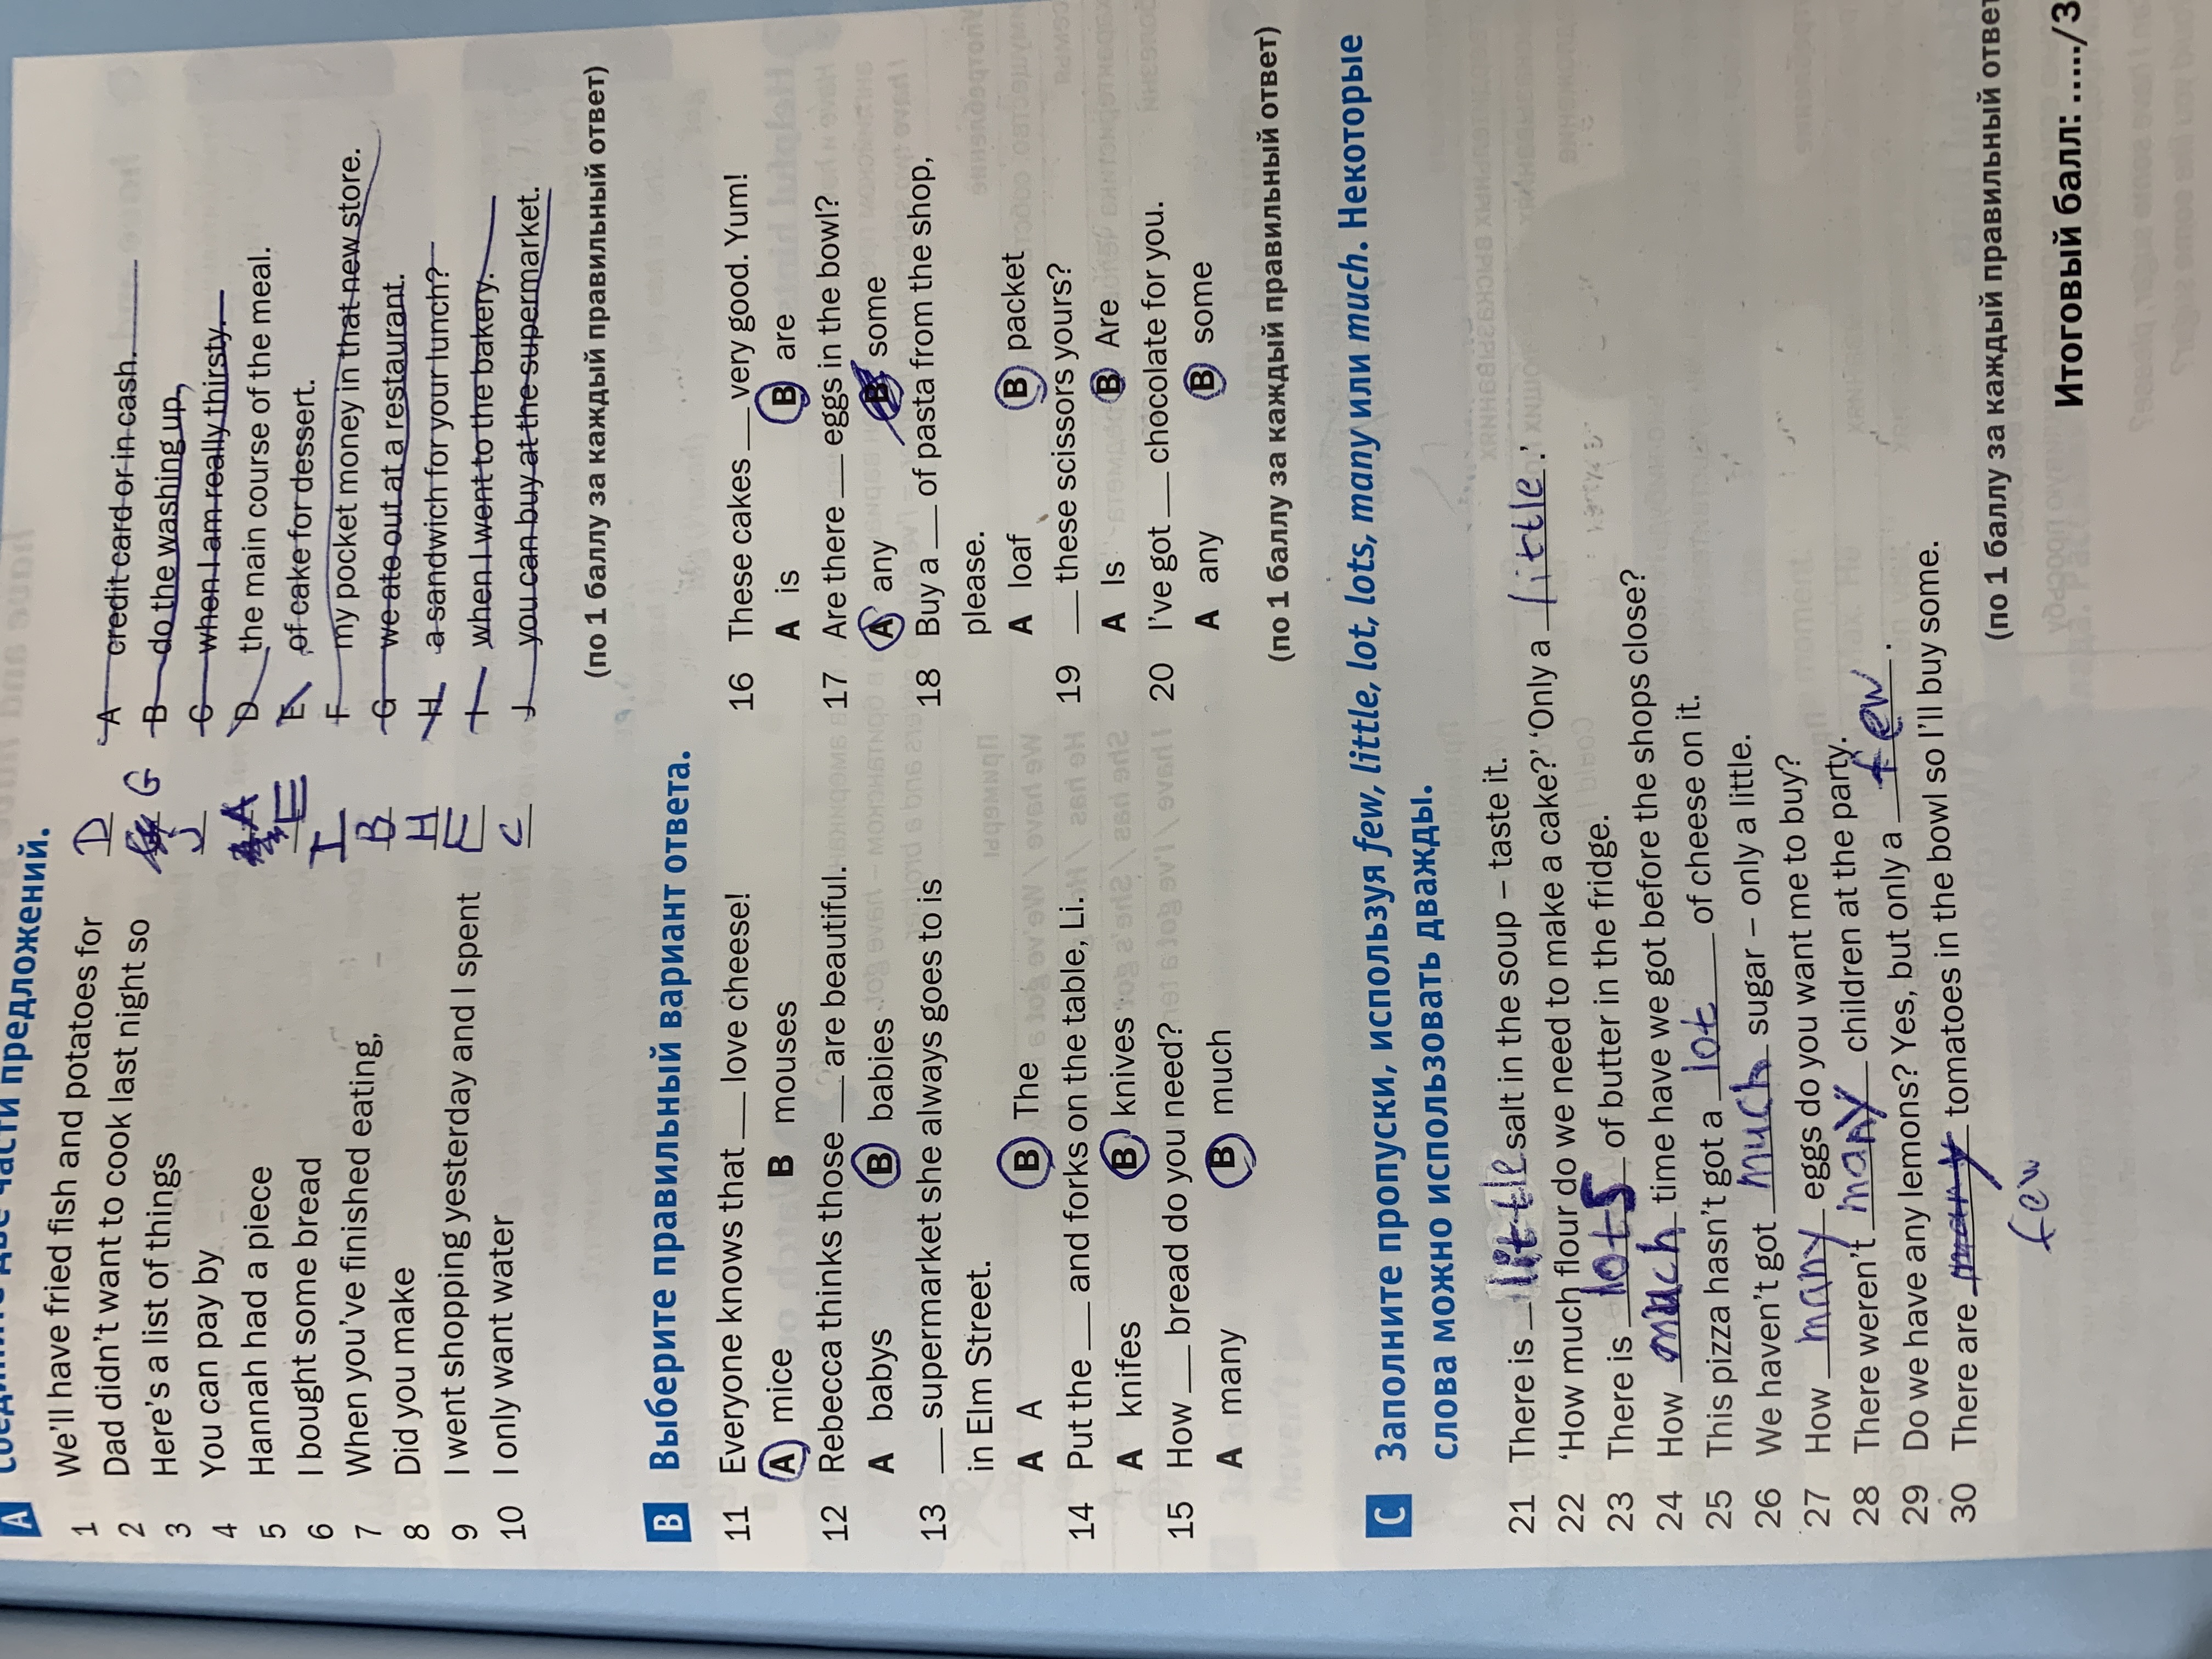 A Соедините две части предложений.
1 We'll have fried fish and potatoes for D
2 Dad didn't want to cook last night so G
3 Here's a list of things J
4 You can pay by A
5 Hannah had a piece E
6 I bought some bread I
7 When you've finished eating, B
8 Did you make H
9 I went shopping yesterday and I spent F
10 I only want water C
A credit card or in cash.
B do the washing up,
C when I am really thirsty.
D the main course of the meal.
E of cake for dessert.
F my pocket money in that new store.
G we ate out at a restaurant.
H a sandwich for your lunch?
I when I went to the bakery.
J you can buy at the supermarket.
(по 1 баллу за каждый правильный ответ)
B Выберите правильный вариант ответа.
11 Everyone knows that ___ love cheese!
A mice B mouses
12 Rebecca thinks those ___ are beautiful.
A babys B babies
13 ___ supermarket she always goes to is
in Elm Street.
A A B The
14 Put the ___ and forks on the table, Li.
A knifes B knives
15 How ___ bread do you need?
A many B much
16 These cakes ___ very good. Yum!
A is B are
17 Are there ___ eggs in the bowl?
A any B some
18 Buy a ___ of pasta from the shop,
please.
A loaf B packet
19 ___ these scissors yours?
A Is B Are
20 I've got ___ chocolate for you.
A any B some
(по 1 баллу за каждый правильный ответ)
C Заполните пропуски, используя few, little, lot, lots, many или much. Некоторые
слова можно использовать дважды.
21 There is little salt in the soup – taste it.
22 'How much flour do we need to make a cake?' 'Only a little.'
23 There is lots of butter in the fridge.
24 How much time have we got before the shops close?
25 This pizza hasn't got a lot of cheese on it.
26 We haven't got much sugar – only a little.
27 How many eggs do you want me to buy?
28 There weren't many children at the party.
29 Do we have any lemons? Yes, but only a few.
30 There are many tomatoes in the bowl so I'll buy some.
few
(по 1 баллу за каждый правильный ответ
Итоговый балл: ...../3